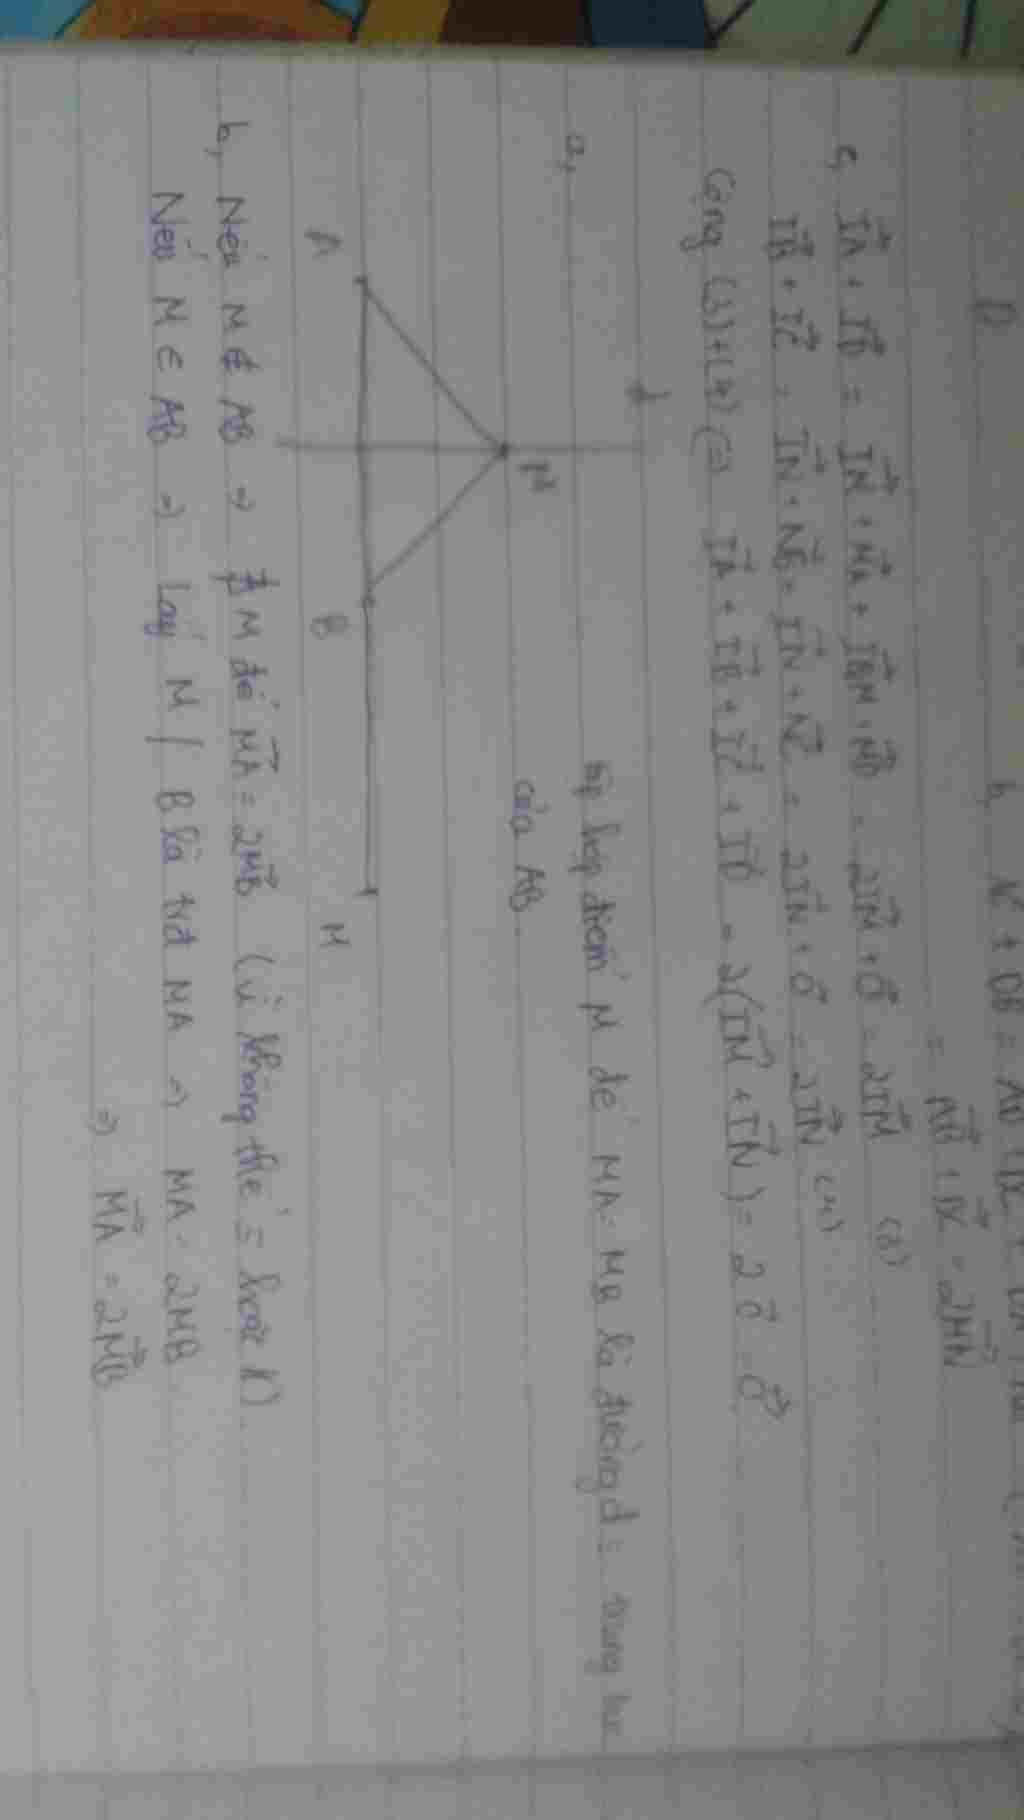 D
b, AC + DB =
= AB + DC = 2MN
c, IA + ID = IM + MA + IM + MD = 2IM + O = 2IM (3)
IB + IC = IN + NB + IN + NC = 2IN + O = 2IN (4)
Cộng (3)+(4) (=) IA + IB + IC + ID = 2(IM + IN) = 2 O = O
a,
tập hợp điểm M để MA = MB là đường d = trung trực
của AB
d
M
A B M
b, Nếu M ∉ AB => ∄ M để MA = 2MB (vì không thể = hoặc
Nếu M ∈ AB => Lấy M / B là trđ MA => MA = 2MB
=> MA = 2MB